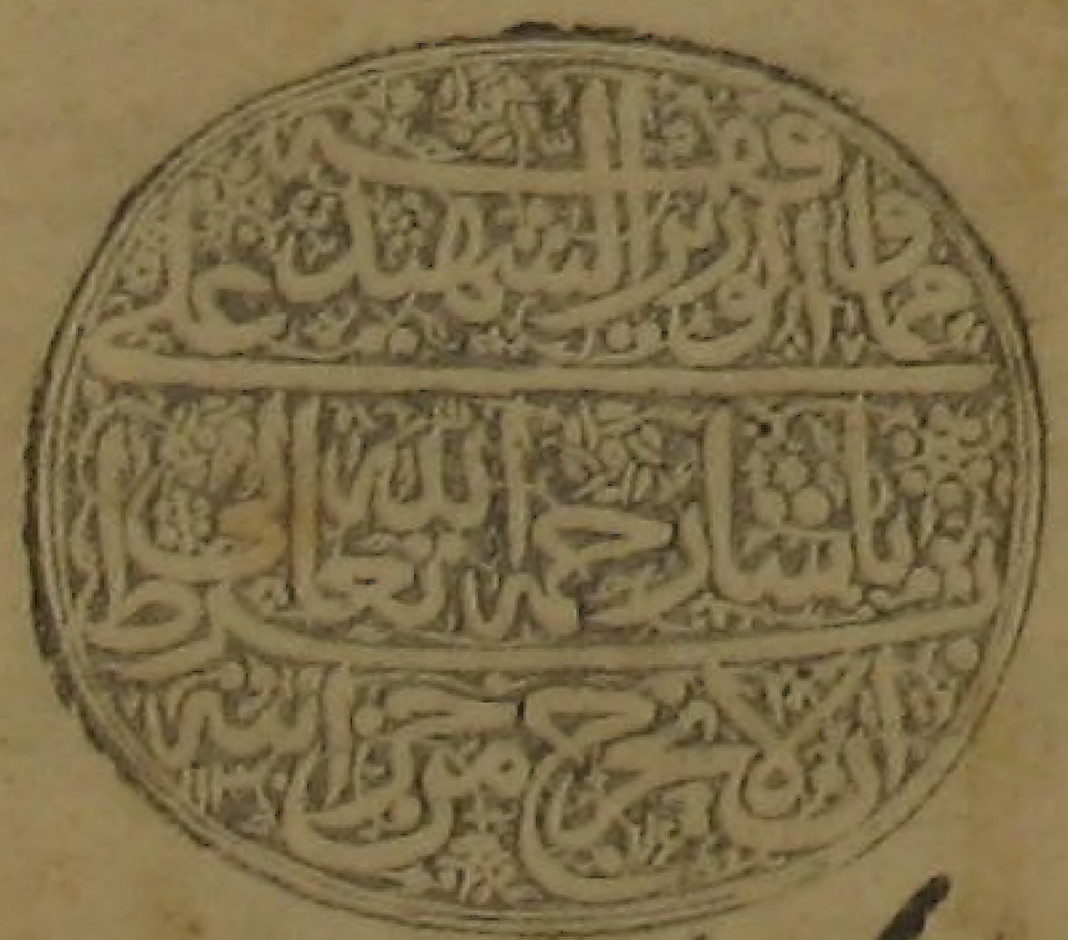 مما وقف الوزير الشهيد علي
باشا رحمه الله تعالى بشرط
ان لا يخرج من خزانته ١١٣٠